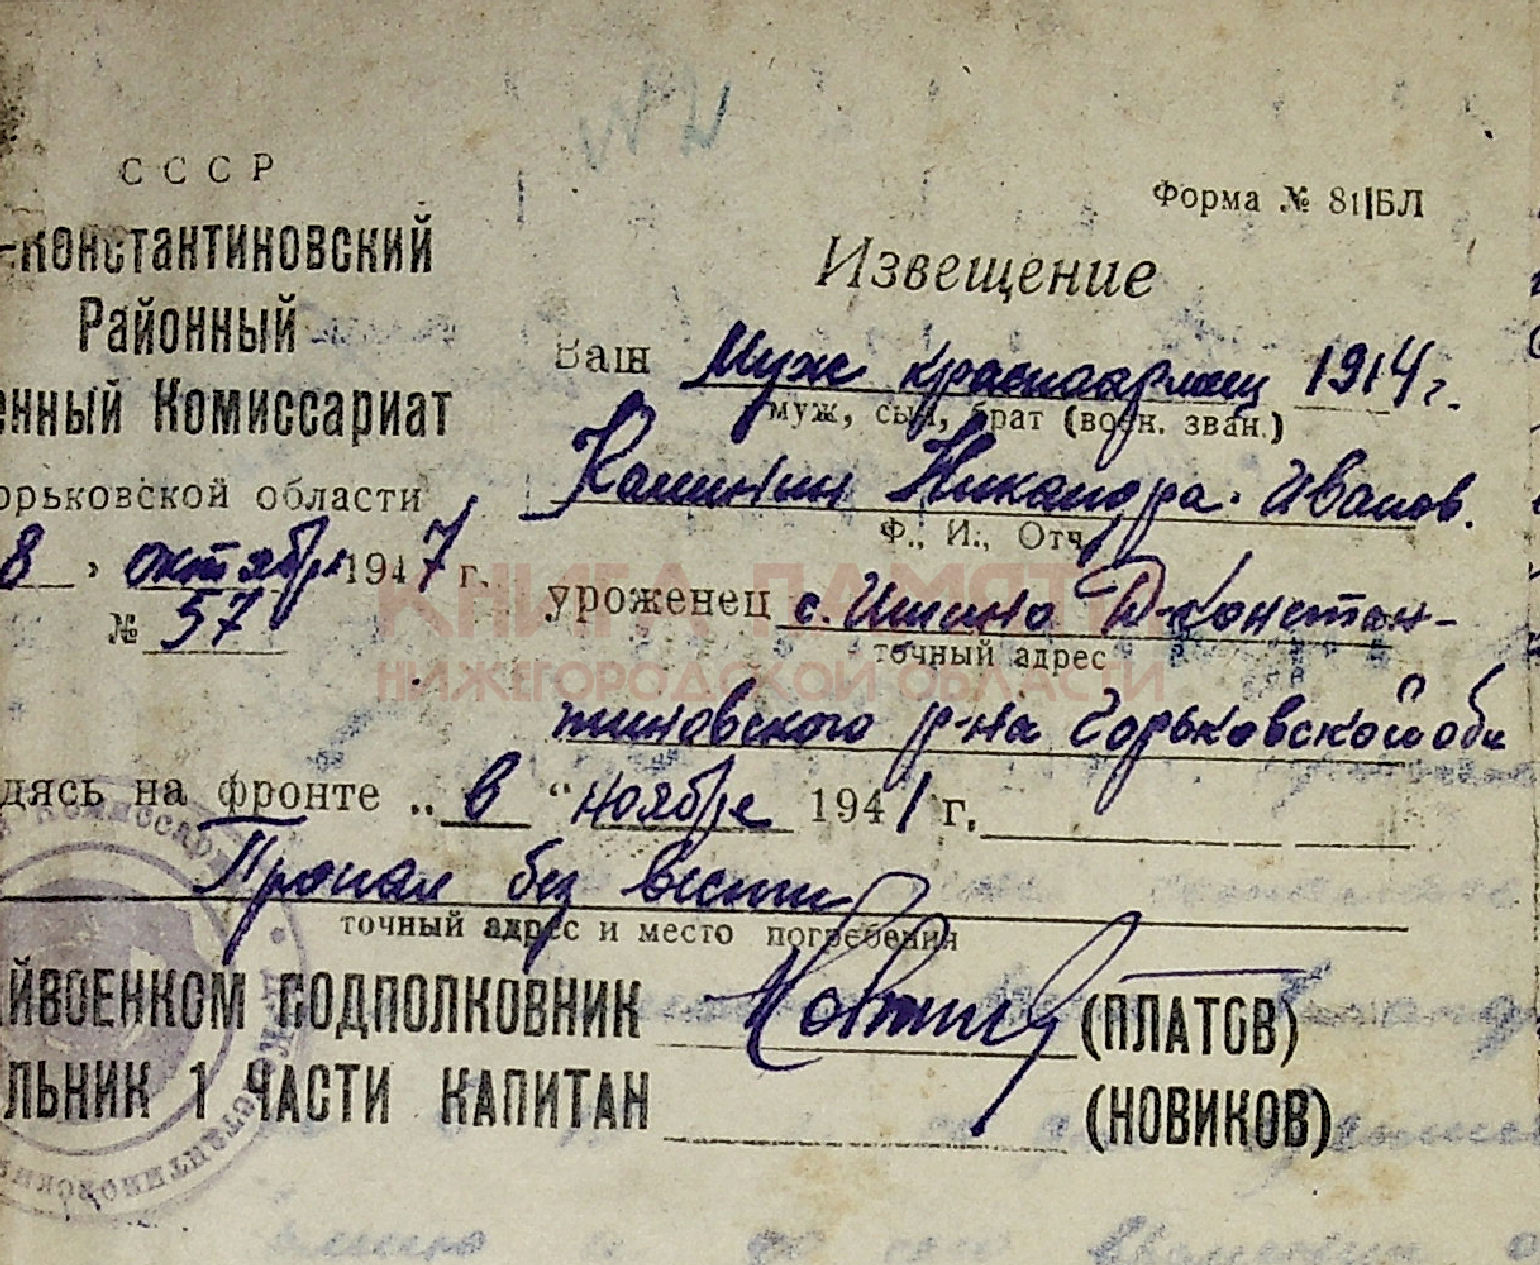 СССР
-Константиновский
Районный
енный Комиссариат
орьковской области
8 " октября 1947 г.
№ 57
Форма № 81|БЛ
Извещение
Ваш Муж красноармеец 1914 г.
муж, сын, брат (воен. зван.)
Никанора Иванов.
Ф., И., Отч.
уроженец с. Д-Констан-
точный адрес
тиновского р-на Горьковской обл
дясь на фронте „ в " ноябре 1941 г.
Пропал без вести
точный адрес и место погребения
йвоенком подполковник (ПЛАТОВ)
льник 1 части капитан (НОВИКОВ)
КНИГА ПАМЯТИ
НИЖЕГОРОДСКОЙ ОБЛАСТИ